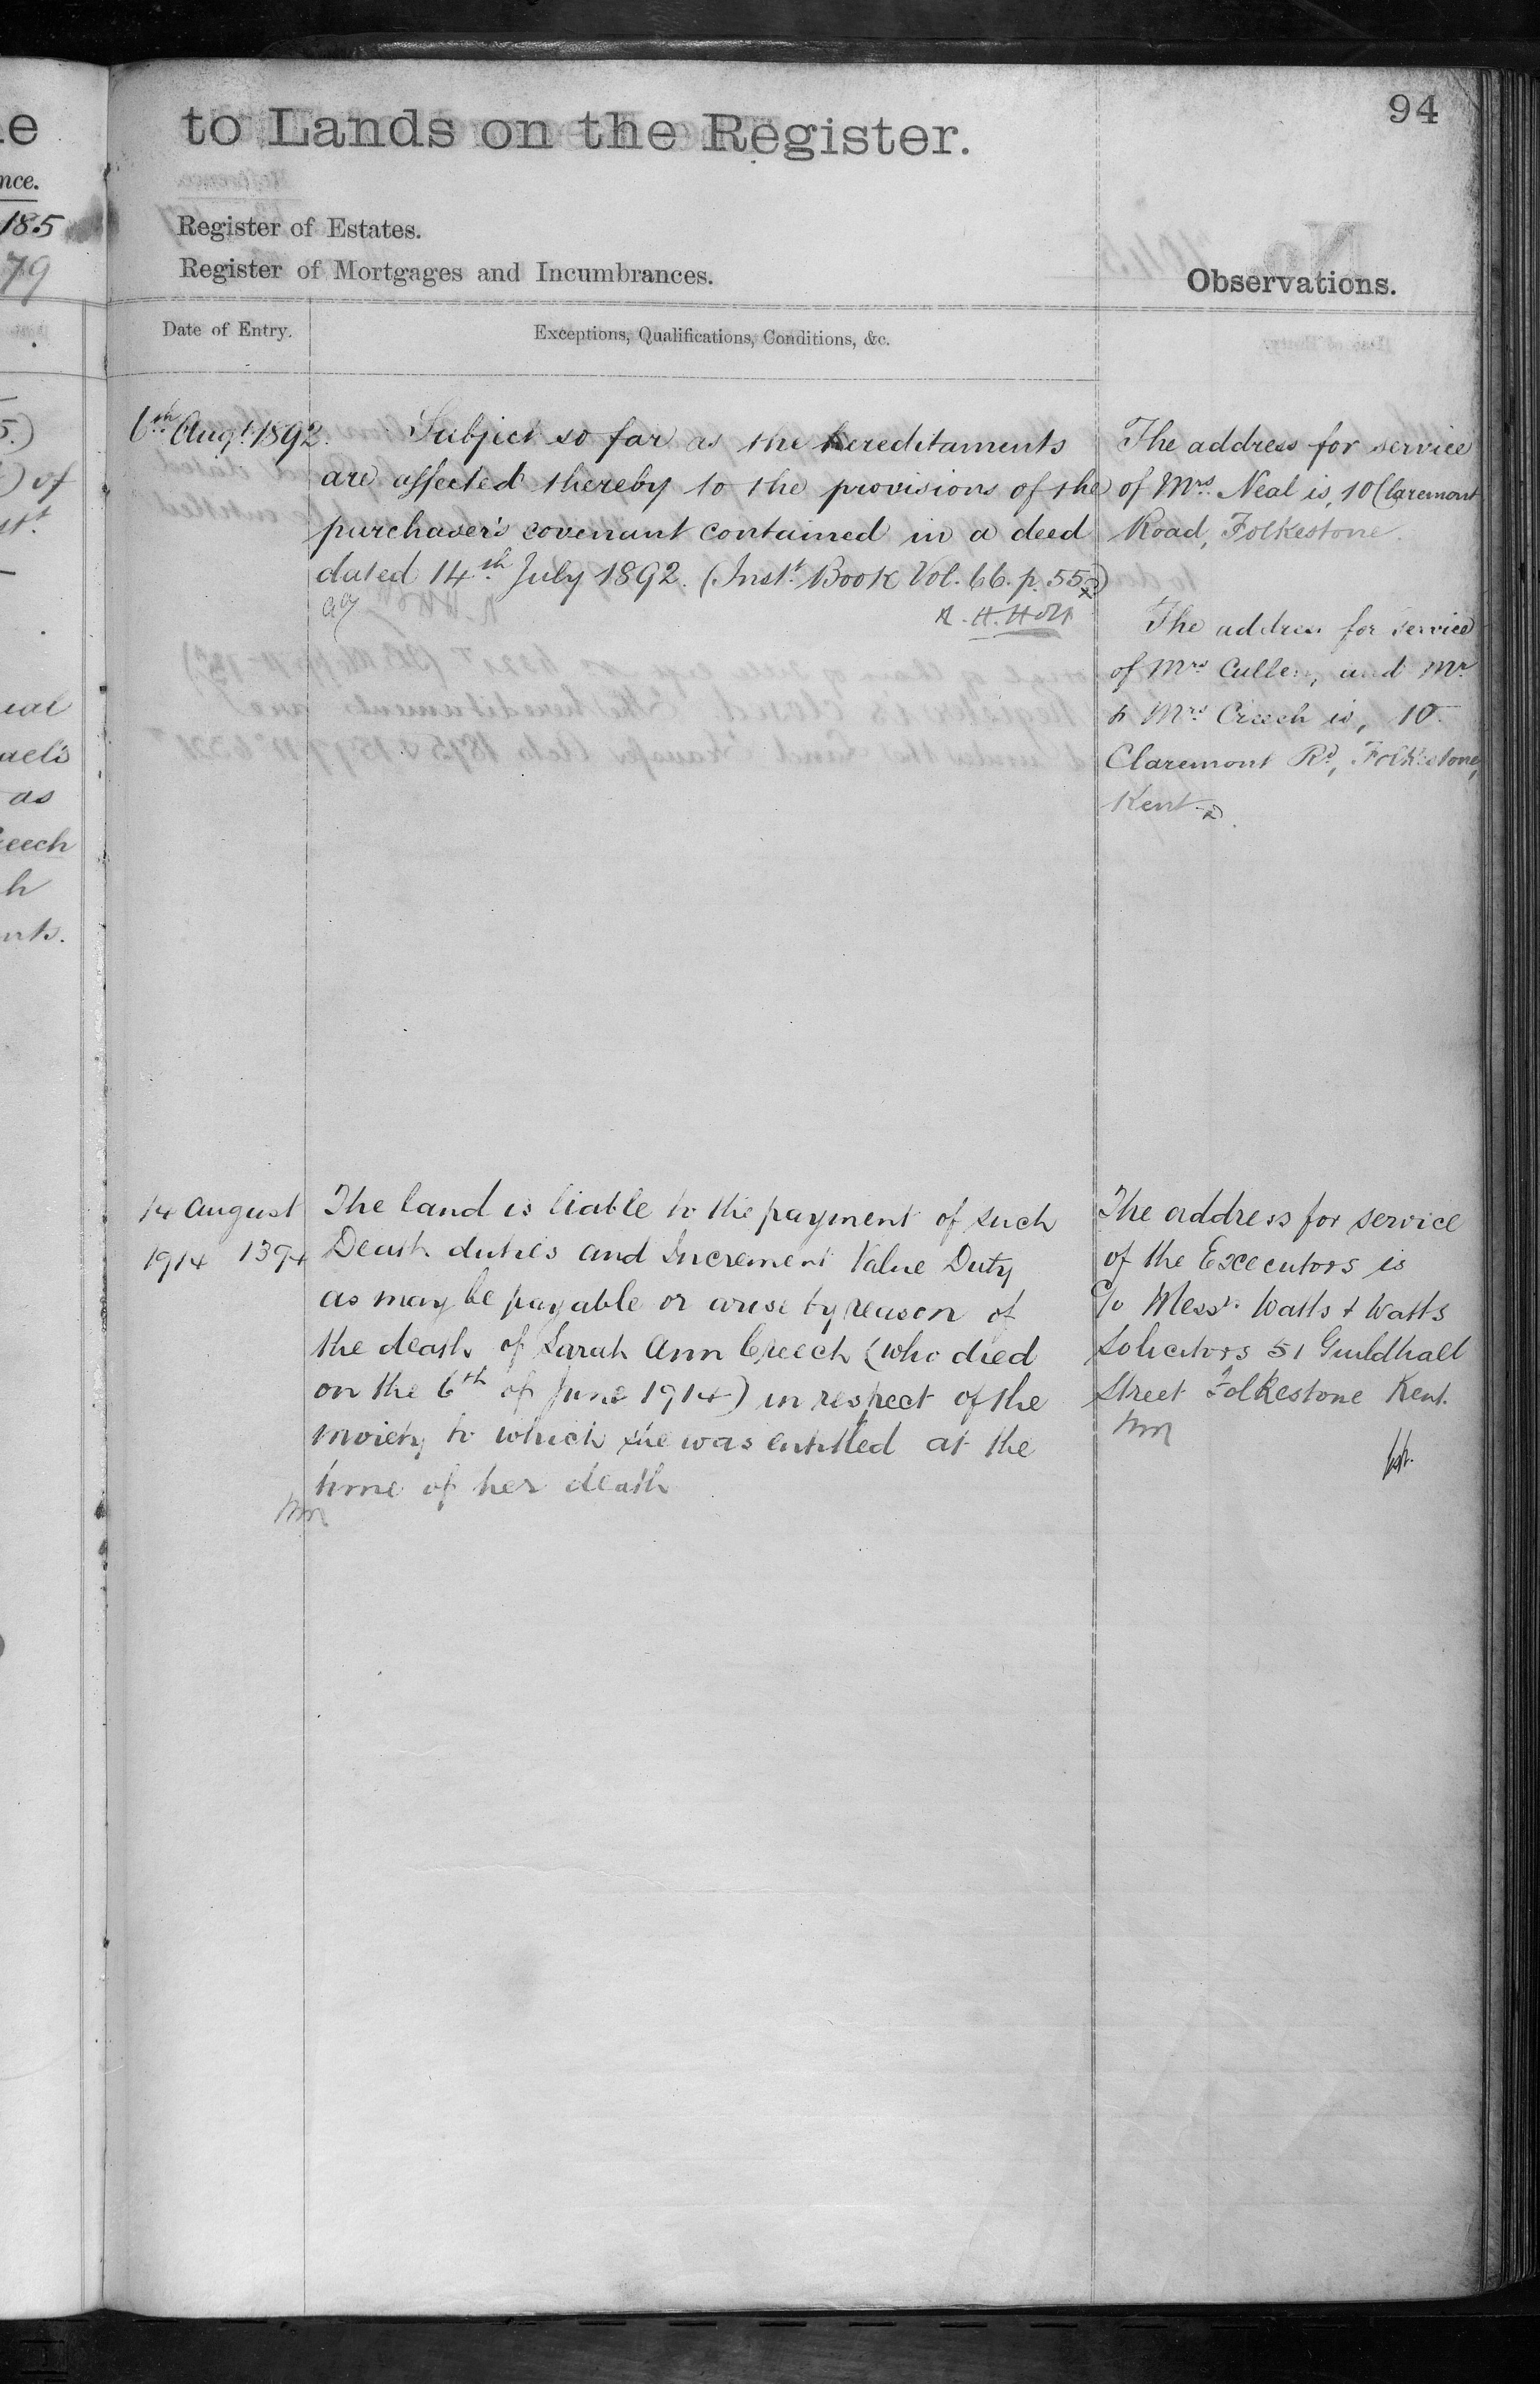 94
to Lands on the Register.
Register of Estates.
Register of Mortgages and Incumbrances.
Observations.
Date of Entry.
Exceptions, Qualifications, Conditions, &c.
6th Augt. 1892.
Subject so far as the hereditaments
are affected thereby to the provisions of the
purchaser's covenant contained in a deed
dated 14th July 1892. (Inst. Book Vol. 66. p. 55)
R. H. Holt
The address for service
of Mrs. Neal is, 10 Claremont
Road, Folkestone.
The address for service
of Mrs Cullen, and Mr
& Mrs Creech is, 10
Claremont Rd, Folkestone,
Kent.
14 August
1914 1394
The land is liable to the payment of such
Death duties and Increment Value Duty
as may be payable or arise by reason of
the death of Sarah Ann Creech (who died
on the 6th of June 1914) in respect of the
moiety to which she was entitled at the
time of her death
The address for service
of the Executors is
c/o Messrs. Watts & Watts
Solicitors 51 Guildhall
Street Folkestone Kent.
e
nce.
185
79
5.)
) of
st.
ael's
as
eech
h
nts.